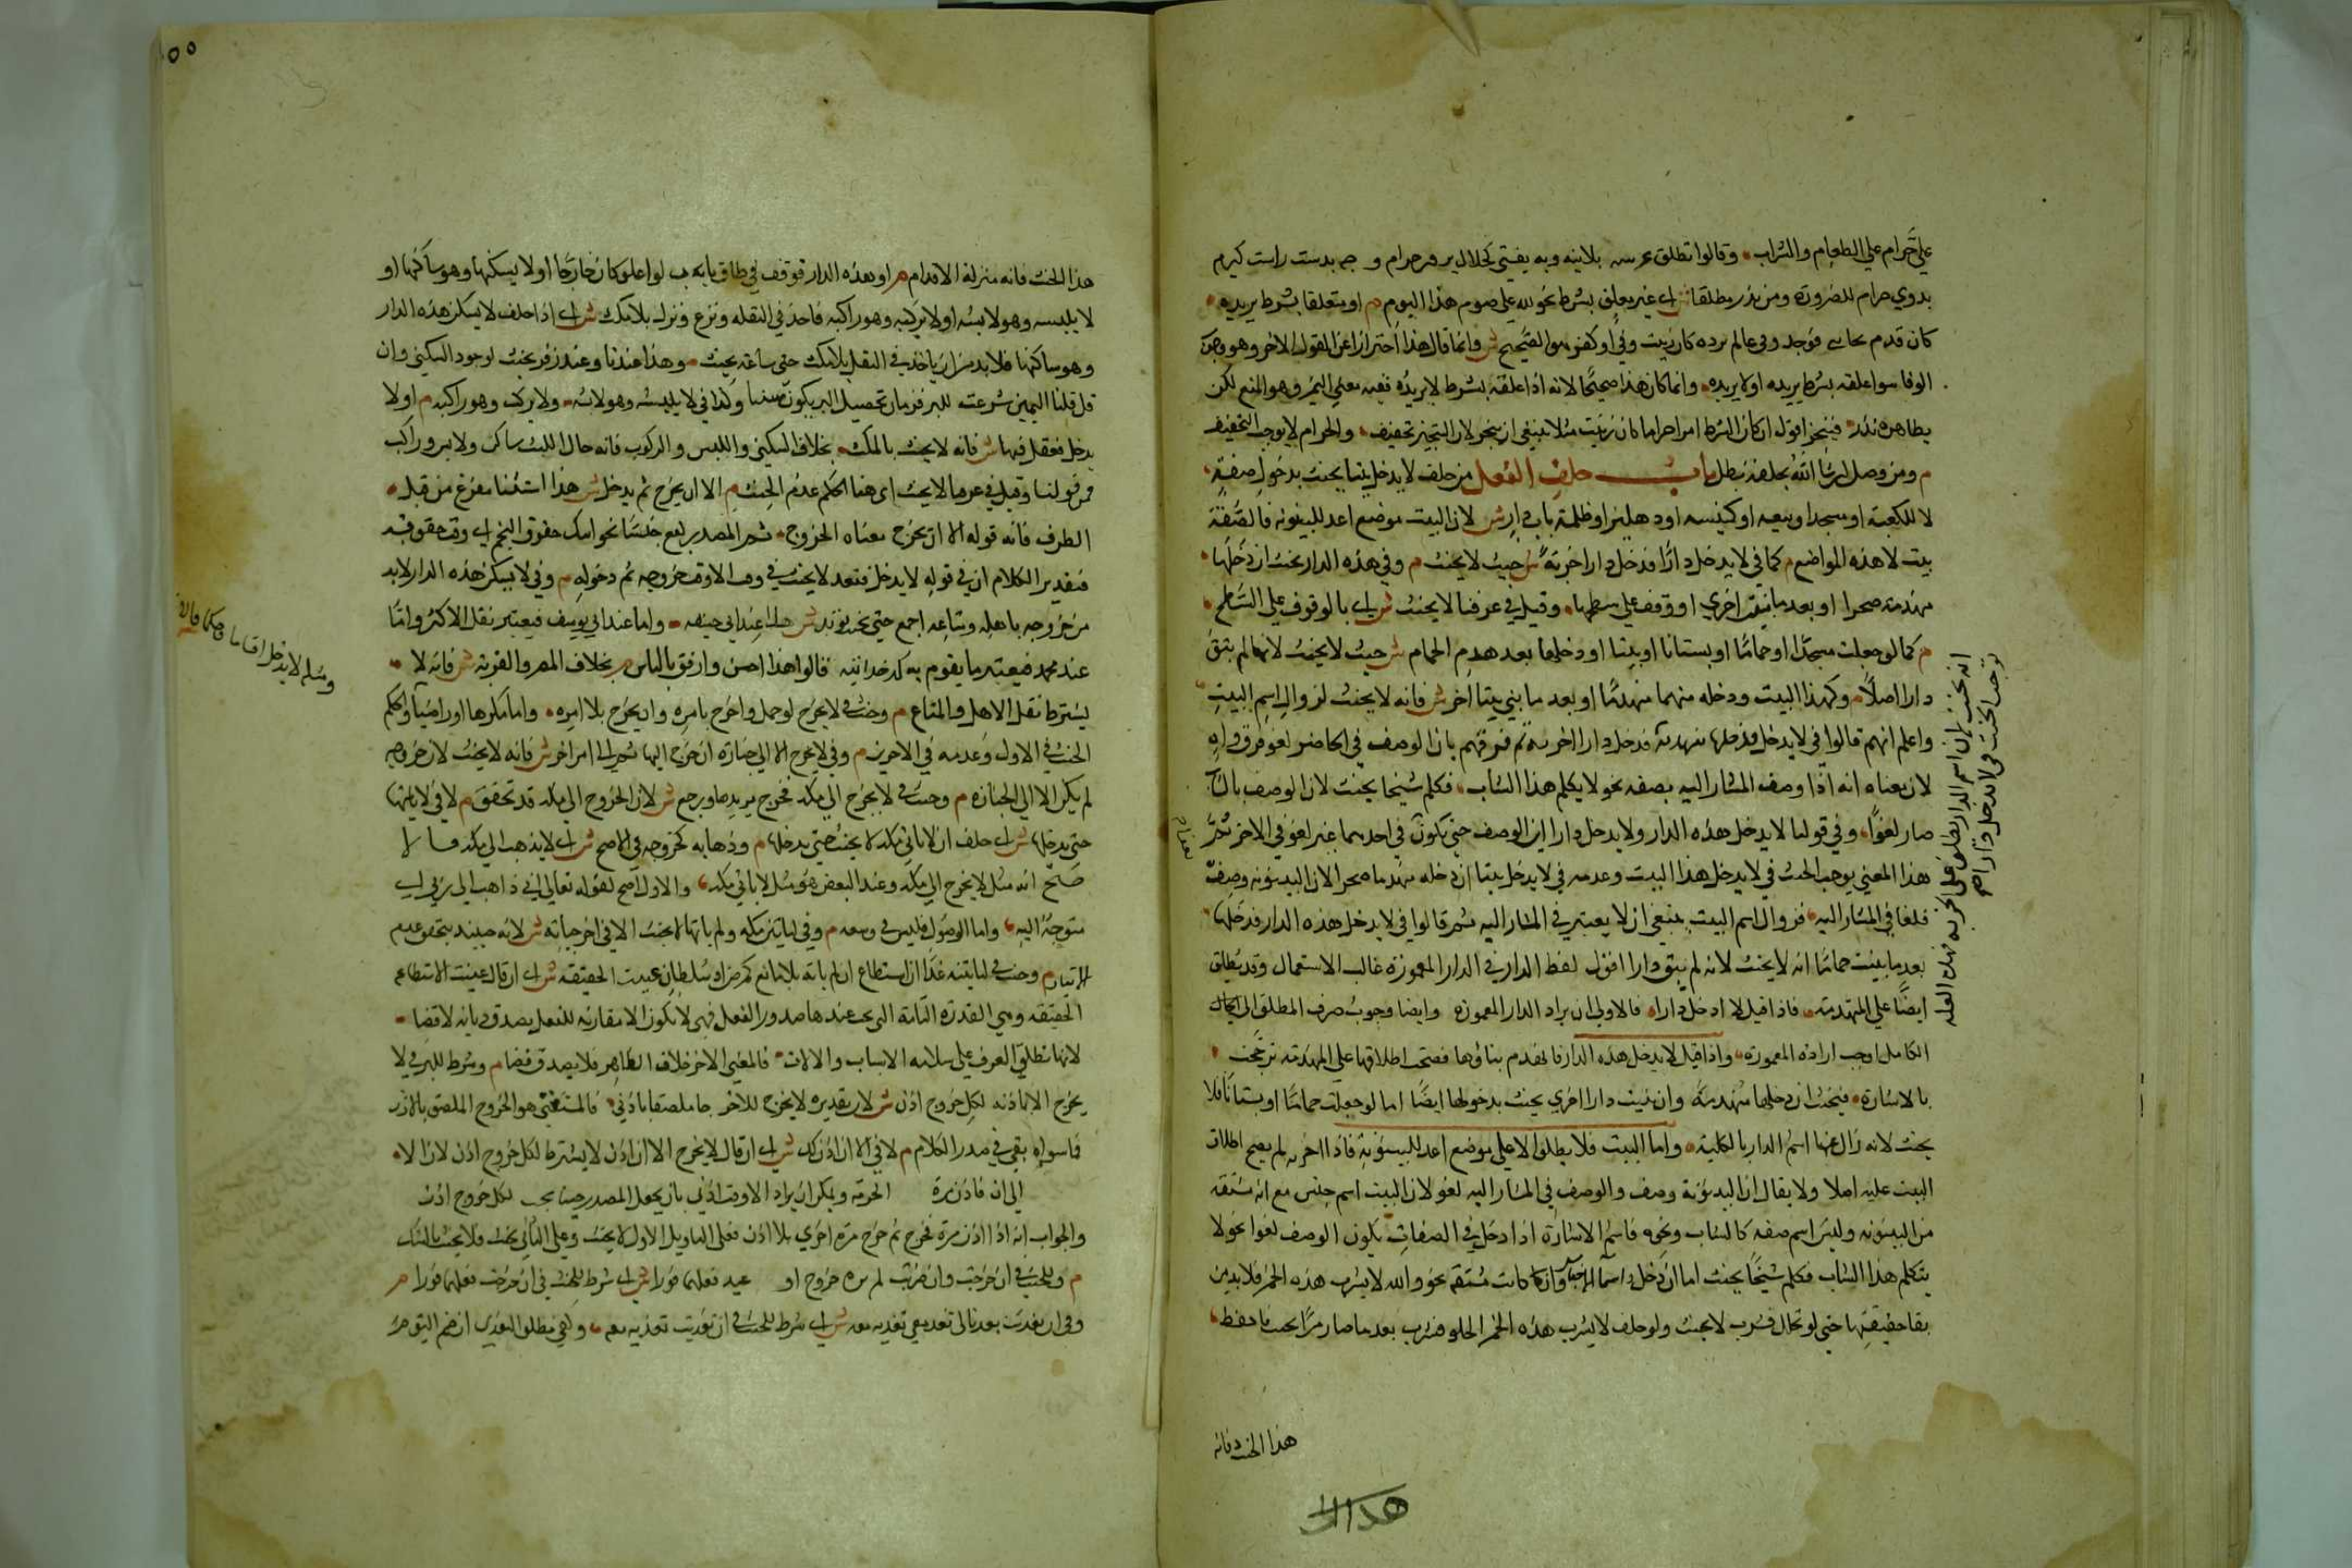 علي حرام علي الطعام والشراب وقالوا تطلق عرسه بلانية وبه يفتي كحلال بر هر حرام و جه بدست راست كيرم
بدوي حرام للضرورة ومن نذر مطلقا ش اي غير معلق بشرط نحو لله علي صوم هذا اليوم م او متعلقا بشرط يريده
كان قدم غائبي فوجد وفي عالم يرده كان زنيت وفي او كفر هو الصحيح ش وانما قال هذا احترازا عن القول الاخر وهو وجوب
الوفا سوا علقه بشرط يريده اولا يريده وانما كان هذا صحيحا لانه اذا علقه بشرط لا يريده ففيه معني اليمين وهو المنع لكن
بظاهره نذر فيتخير اقول ان كان الشرط امرا حراما كان زنيت مثلا ينبغي ان يتخير لان التخيير تخفيف والحرام لا يوجب التخفيف
م ومن وصل ان شا الله بحلفه بطل باب حلف الفعل من حلف لا يدخل بيتا يحنث بدخول صفة
لا الكعبة او مسجد او بيعه او كنيسه او دهليز او ظلة باب دار ش لان البيت موضع اعد للبيتوته فالصفة
بيت لا هذه المواضع م كما في لا يدخل دارا فدخل دارا خربة ش حيث لا يحنث م وفي هذه الدار يحنث ان دخلها
منهدمة صحرا او بعد ما بنيت اخري او وقف علي سطحها وقيل في عرفنا لا يحنث ش اي بالوقوف علي السطح
م كما لو جعلت مسجدا او حماما او بستانا او بيتا او دخلها بعد هدم الحمام ش حيث لا يحنث لانها لم تبق
دارا اصلا م وكهذا البيت ودخله منهدما او بعد ما بني بيتا اخر ش فانه لا يحنث لزوال اسم البيت
واعلم انهم قالوا في لا يدخل فدخلها منهدمة فدخل دارا خربة ثم فرقهم بان الوصف في الحاضر لغو فرق واه
لان معناه انه اذا وصف المشار اليه بصفه نحو لا يكلم هذا الشاب فكلم شيخا يحنث لان الوصف بالشاب
صار لغوا وفي قولنا لا يدخل هذه الدار ولا يدخل دارا اين الوصف حتي يكون في احدهما غير لغو في الاخر ثم
هذا المعني يوجب الحنث في لا يدخل هذا البيت وعدمه في لا يدخل بيتا ان دخله منهدما صحرا لان البيتوته وصف
فلغا في المشار اليه فزوال اسم البيت ينبغي ان لا يعتبر في المشار اليه ثم قالوا في لا يدخل هذه الدار فدخلها
بعد ما بنيت حماما انه لا يحنث لانه لم يبق دارا اقول لفظ الدار في الدار المعمورة غالب الاستعمال وقد يطلق
ايضا علي المنهدمة فاذا قيل لا ادخل دارا فالاولي ان يراد الدار المعمورة وايضا وجوب صرف المطلق الي الكمال
الكامل اوجب ارادة المعمورة واذا قيل لا يدخل هذه الدار فانهدم بناؤها فصحت اطلاقها علي المنهدمة ترجحت
بالاشارة فيحنث ان دخلها منهدمة وان بنيت دارا اخري يحنث بدخولها ايضا اما لو جعلت حماما او بستانا فلا
يحنث لانه زال عنها اسم الدار بالكلية واما البيت فلا يطلق الا علي موضع اعد للبيتوتة فاذا اخرب لم يصح اطلاق
البيت عليه اصلا ولا يقال ان البيتوتة وصف والوصف في المشار اليه لغو لان البيت اسم جنس مع انه مشتقه
من البيتوته وليس اسم صفه كالشاب ونحوه فاسم الاشارة اذا دخل في الصفات يكون الوصف لغوا نحو لا
يتكلم هذا الشاب فكلم شيخا يحنث اما ان دخل اسما الاجناس وان كانت مشتقه نحو والله لا يشرب هذه الخمر فلا بد من
بقا حقيقتها حتي لو تخلل فشرب لا يحنث ولو حلف لا يشرب هذه الخمر الحلو فشرب بعد ما صار مرا يحنث فاحفظ
هذا البحث فانه
هذا ال
هذا البحث فانه مزلة الاقدام م او هذه الدار فوقف في طاق بابه لو اغلق كان خارجا او لا يسكنها وهو ساكنها او
لا يلبسه وهو لابسه او لا يركبه وهو راكبه فاخذ في النقله ونزع ونزل بلا مكث ش اي اذا حلف لا يسكن هذه الدار
وهو ساكنها فلا بد من ان ياخذ في النقل بلا مكث حتي ساعة يحنث وهذا عندنا وعند زفر يحنث لوجود السكني وان
قل قلنا اليمين شرعت للبر فزمان تحصيل البر يكون مستثنا وكذا في لا يلبسه وهو لابسه ولا يركب وهو راكبه م او لا
يدخل فقعد فيها ش فانه لا يحنث بالمكث بخلاف السكني واللبس والركوب فانه حال اللبث ساكن ولابس وراكب
من قولنا وقيل في عرفنا لا يحنث اي هنا الحكم عدم الحنث م الا ان يخرج ثم يدخل ش هذا استثنا مفرغ من قبل
الظرف فانه قوله الا ان يخرج معناه الخروج ثم المصدر يقع حينا نحو اتيك حفوق النجم اي وقت حقوقه
فتقدير الكلام ان في قوله لا يدخل فقعد لا يحنث في وقت الا وقت خروجه ثم دخوله م وفي لا يسكن هذه الدار لا بد
من خروجه باهله ومتاعه اجمع حتي يحنث بوتد ش هذا عند ابي حنيفه واما عند ابي يوسف فيعتبر نقل الاكثر واما
عند محمد فيعتبر ما يقوم به كدخدائيه قالوا هذا احسن وارفق بالناس م بخلاف المصر والقرية ش فانه لا
يشترط نقل الاهل والمتاع م وحنث في لا يخرج لو حمل واخرج بامره وان يخرج بلا امره واما مكرها او راضيا والحكم
الحنث في الاول وعدمه في الاخرين م وفي لا يخرج الا الي جنازة ان خرج اليها ثم الي امر اخر ش فانه لا يحنث لان خروجه
لم يكن الا الي الجنازة م وحنث في لا يخرج الي مكة فخرج يريدها ورجع ش لان الخروج الي مكة قد تحقق م لا في لا ياتيها
حتي يدخلها ش اي حلف ان لا ياتي مكة لا يحنث حتي يدخلها م وذهابه كخروجه في الاصح ش اي لا يذهب الي مكة
صحح انه مثل لا يخرج الي مكة وعند البعض هو مثل لا ياتي مكة والاول اصح لقوله تعالي اني ذاهب الي ربي اي
متوجه اليه واما الوصول فليس في وسعه م وفي لياتين مكة ولم ياتها لا يحنث الا في اخر حياته ش لانه حينئذ يتحقق عدم
الاتيان م وحنث في لياتينه غدا ان استطاع ان لم ياته بلا مانع كمرض او سلطان عينت الحقيقه ش اي ان قال عينت الاستطاعة
الحقيقه وهي القدرة التامة التي يجب عندها صدور الفعل فهي لا تكون الا مقارنة للفعل يصدق ديانه لا قضا
لانها تطلق في العرف علي سلامه الاسباب والالات فالمعني الاخر خلاف الظاهر فلا يصدق قضا م وشرط للبر في لا
يخرج الا باذنه لكل خروج اذن ش لان تقديره لا يخرج الا خروجا ملصقا باذني فالمستثني هو الخروج الملصق بالاذن
فما سواه بقي في صدر الكلام م لا في الا ان اذن لك ش اي ان قال لا يخرج الا ان اذن لا يشترط لكل خروج اذن لان الا
الي ان فاذن مرة الحرمة ويمكن ان يراد الا وقت اذني بان يجعل المصدر حينا يجب لكل خروج اذن
والجواب انه اذا اذن مرة فخرج ثم خرج مرة اخري بلا اذن فعلي التاويل الاول لا يحنث وعلي الثاني يحنث فلا يحنث بالشك
م وللحنث في ان خرجت وان ضربت لم يره خروج او عبد فعلهما فورا ش اي شرط للحنث في ان خرجت فعلهما فورا م
وفي ان تغديت بعد تعال تغد معي تغديه معه ش اي شرط للحنث في ان تغديت تغديه معه وكفي مطلق التغدي ان ضم اليوم م